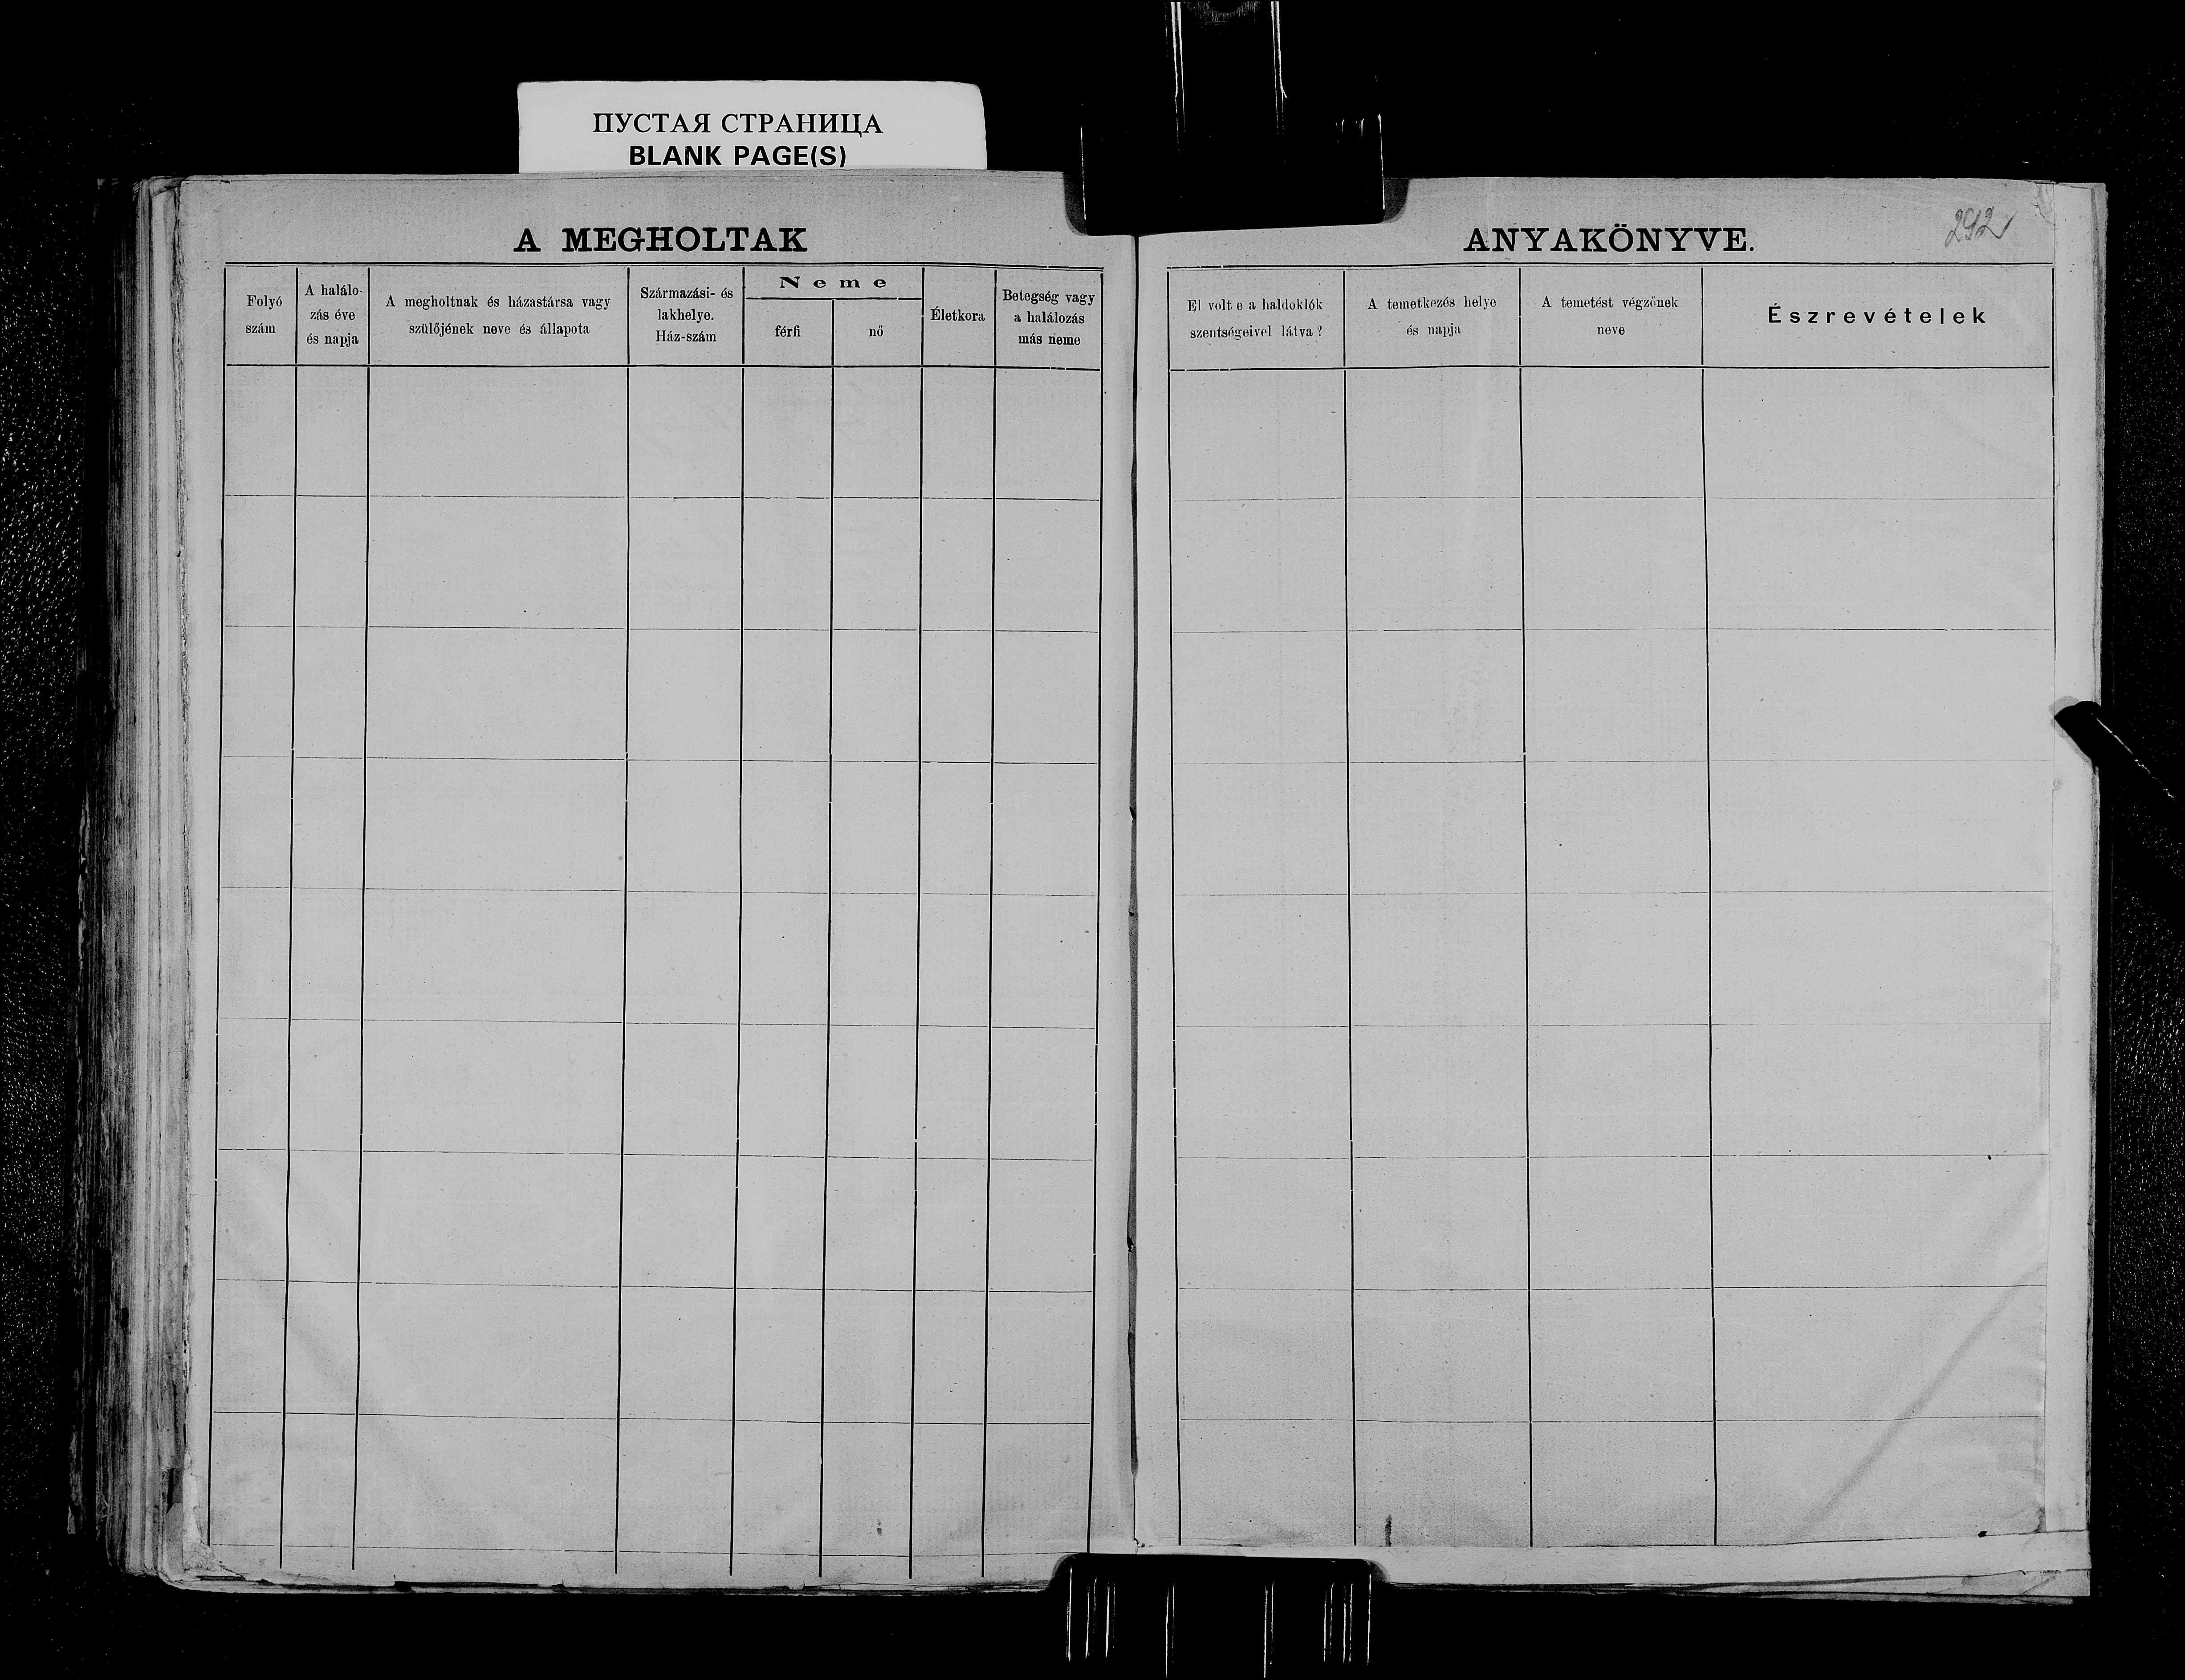 ПУСТАЯ СТРАНИЦА
BLANK PAGE(S)
A MEGHOLTAK
Folyó
szám
A halálo-
zás éve
és napja
A megholtnak és házastársa vagy
szülőjének neve és állapota
Származási- és
lakhelye.
Ház-szám
Neme
férfi
nő
Életkora
Betegség vagy
a halálozás
más neme
ANYAKÖNYVE.
292
El volt e a haldoklók
szentségeivel látva?
A temetkezés helye
és napja
A temetést végzőnek
neve
Észrevételek